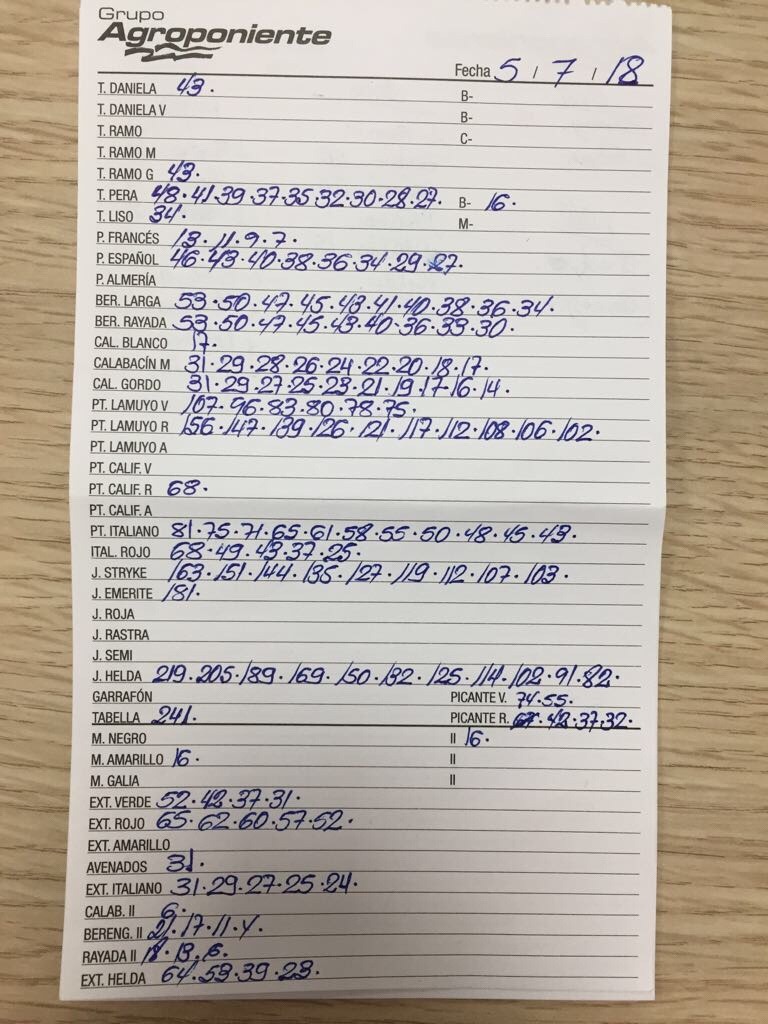 Grupo
Agroponiente
Fecha 5 / 7 / 18
T. DANIELA 43. B-
T. DANIELA V B-
T. RAMO C-
T. RAMO M
T. RAMO G 43.
T. PERA 48. 41. 39. 37. 35. 32. 30. 28. 27. B- 16.
T. LISO 34. M-
P. FRANCÉS 13. 11. 9. 7.
P. ESPAÑOL 46. 43. 40. 38. 36. 34. 29. 27.
P. ALMERÍA
BER. LARGA 53. 50. 47. 45. 43. 41. 40. 38. 36. 34.
BER. RAYADA 53. 50. 47. 45. 43. 40. 36. 33. 30.
CAL. BLANCO 17.
CALABACÍN M 31. 29. 28. 26. 24. 22. 20. 18. 17.
CAL. GORDO 31. 29. 27. 25. 23. 21. 19. 17. 16. 14.
PT. LAMUYO V 107. 96. 83. 80. 78. 75.
PT. LAMUYO R 156. 147. 139. 126. 121. 117. 112. 108. 106. 102.
PT. LAMUYO A
PT. CALIF. V
PT. CALIF. R 68.
PT. CALIF. A
PT. ITALIANO 81. 75. 71. 65. 61. 58. 55. 50. 48. 45. 43.
ITAL. ROJO 68. 49. 43. 37. 25.
J. STRYKE 163. 151. 144. 135. 127. 119. 112. 107. 103.
J. EMERITE 181.
J. ROJA
J. RASTRA
J. SEMI
J. HELDA 219. 205. 189. 169. 150. 132. 125. 114. 102. 91. 82.
GARRAFÓN PICANTE V. 74. 55.
TABELLA 241. PICANTE R. 42. 37. 32.
M. NEGRO II 16.
M. AMARILLO 16. II
M. GALIA II
EXT. VERDE 52. 42. 37. 31.
EXT. ROJO 65. 62. 60. 57. 52.
EXT. AMARILLO
AVENADOS 31.
EXT. ITALIANO 31. 29. 27. 25. 24.
CALAB. II 6.
BERENG. II 21. 17. 11. Y.
RAYADA II 18. 13. 6.
EXT. HELDA 64. 53. 39. 23.